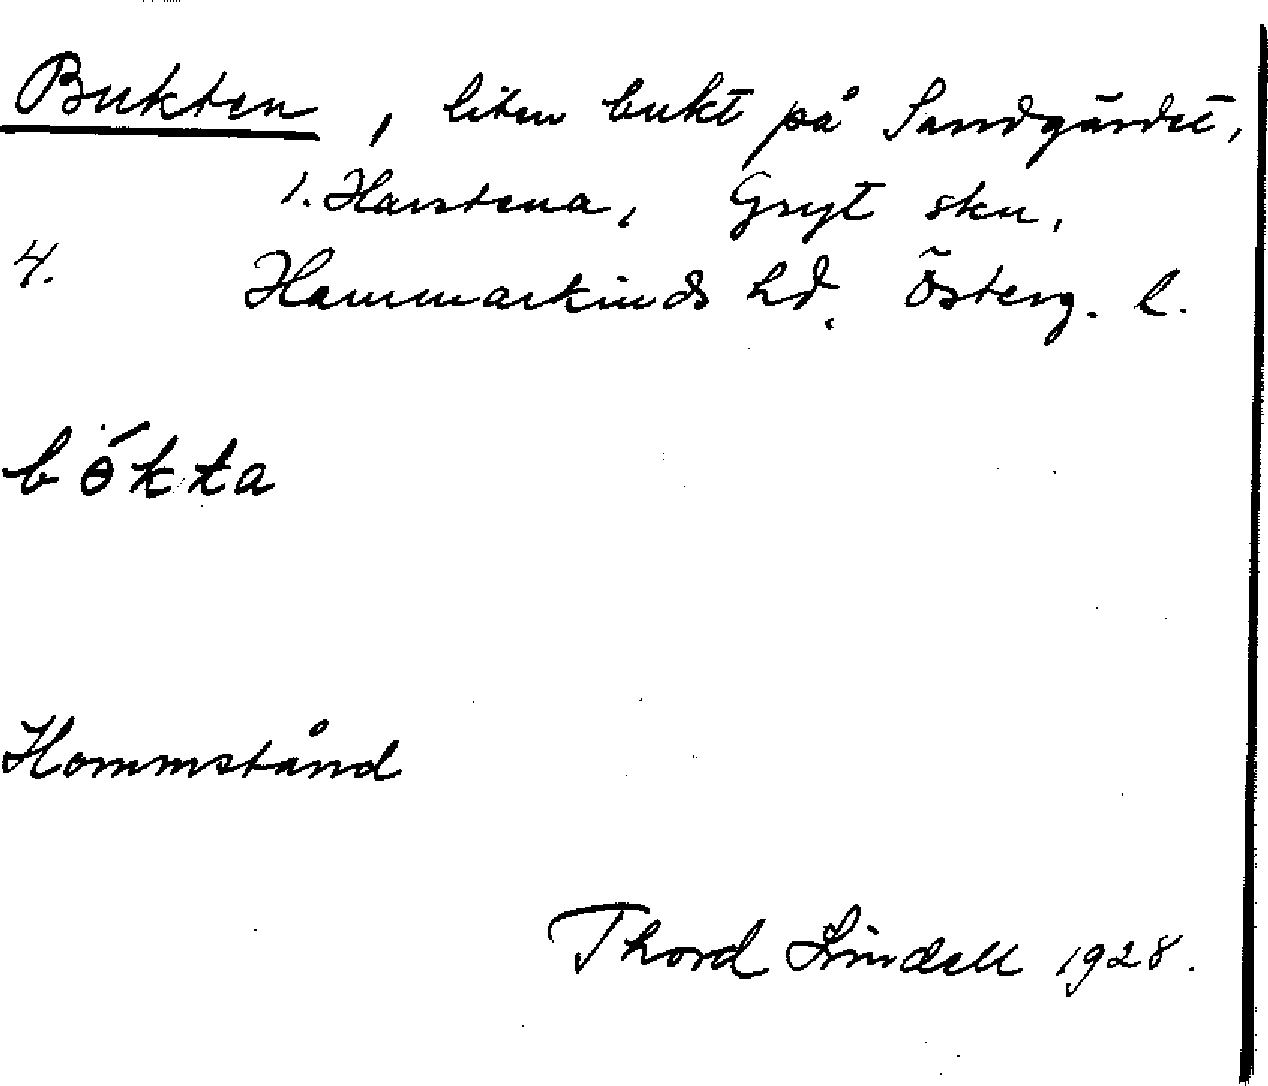 Bukten, liten bukt på Sandgärdet,
1. Harstena, Gryt skn,
4. Hammarkinds hd. Österg. l.
bókta
Hommstånd
Thord Lindell 1928.